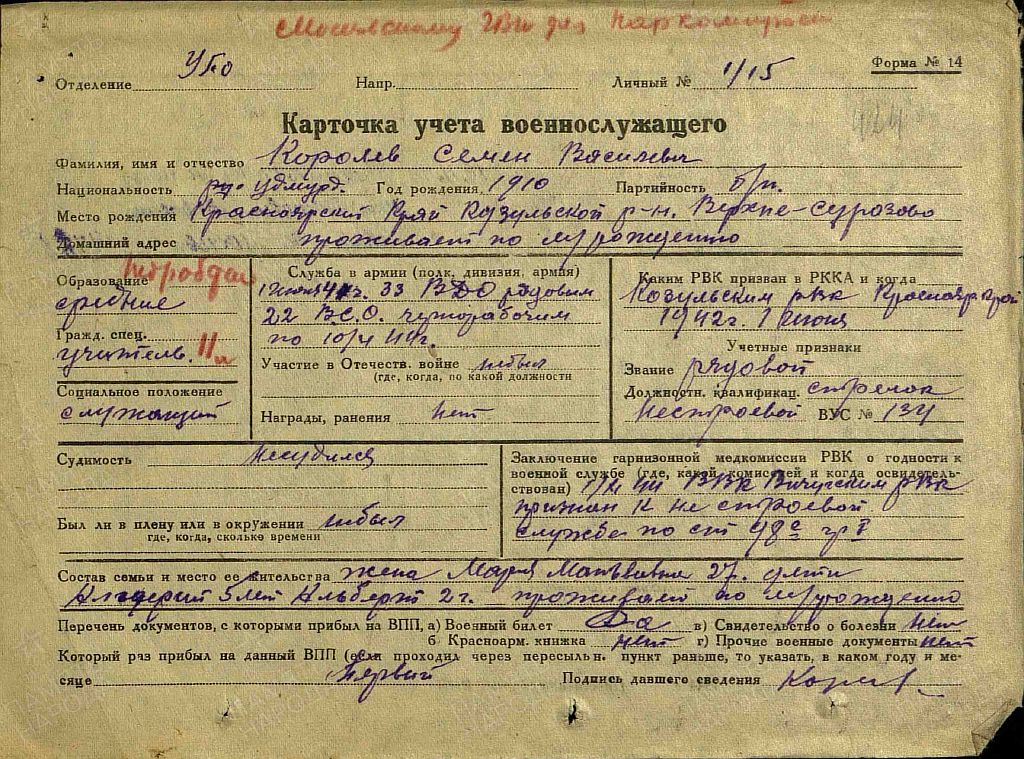 Московскому ГВП для Наркомпроса
Форма № 14
Отделение УБО Напр. Личный № 1/15
Карточка учета военнослужащего
Фамилия, имя и отчество Королев Семен Васильевич
Национальность удмурд. Год рождения 1910 Партийность б/п.
Место рождения Красноярский Край Козульской р-н. Верхне-
Домашний адрес проживает по м/рождению
Образование
средние
Гражд. спец.
учитель.
Социальное положение
служащий
Служба в армии (полк, дивизия, армия)
33 рядовым
22 В.С.О. чернорабочим
по 10/4 44г.
Участие в Отечеств. войне небыл
(где, когда, по какой должности
Награды, ранения Нет
Каким РВК призван в РККА и когда
Козульским рвк Краснояр край
1942г. 1 июня
Учетные признаки
Звание рядовой
Должностн. квалификац. стрелок
Нестроевой ВУС № 134
Судимость Несудился
Был ли в плену или в окружении небыл
где, когда, сколько времени
Заключение гарнизонной медкомиссии РВК о годности к
военной службе (где, какой комиссией и когда освидетель-
ствован) ВВК Вичугским рвк
признан к не строевой
службе по ст 98
Состав семьи и место ее жительства жена Мария Матвеевна 27. дети
5 лет Альберт 2 г. проживает по м/рождению
Перечень документов, с которыми прибыл на ВПП, а) Военный билет Да в) Свидетельство о болезни нет
б Красноарм. книжка нет г) Прочие военные документы нет
Который раз прибыл на данный ВПП (если проходил через пересыльн. пункт раньше, то указать, в каком году и ме-
сяце Первый Подпись давшего сведения